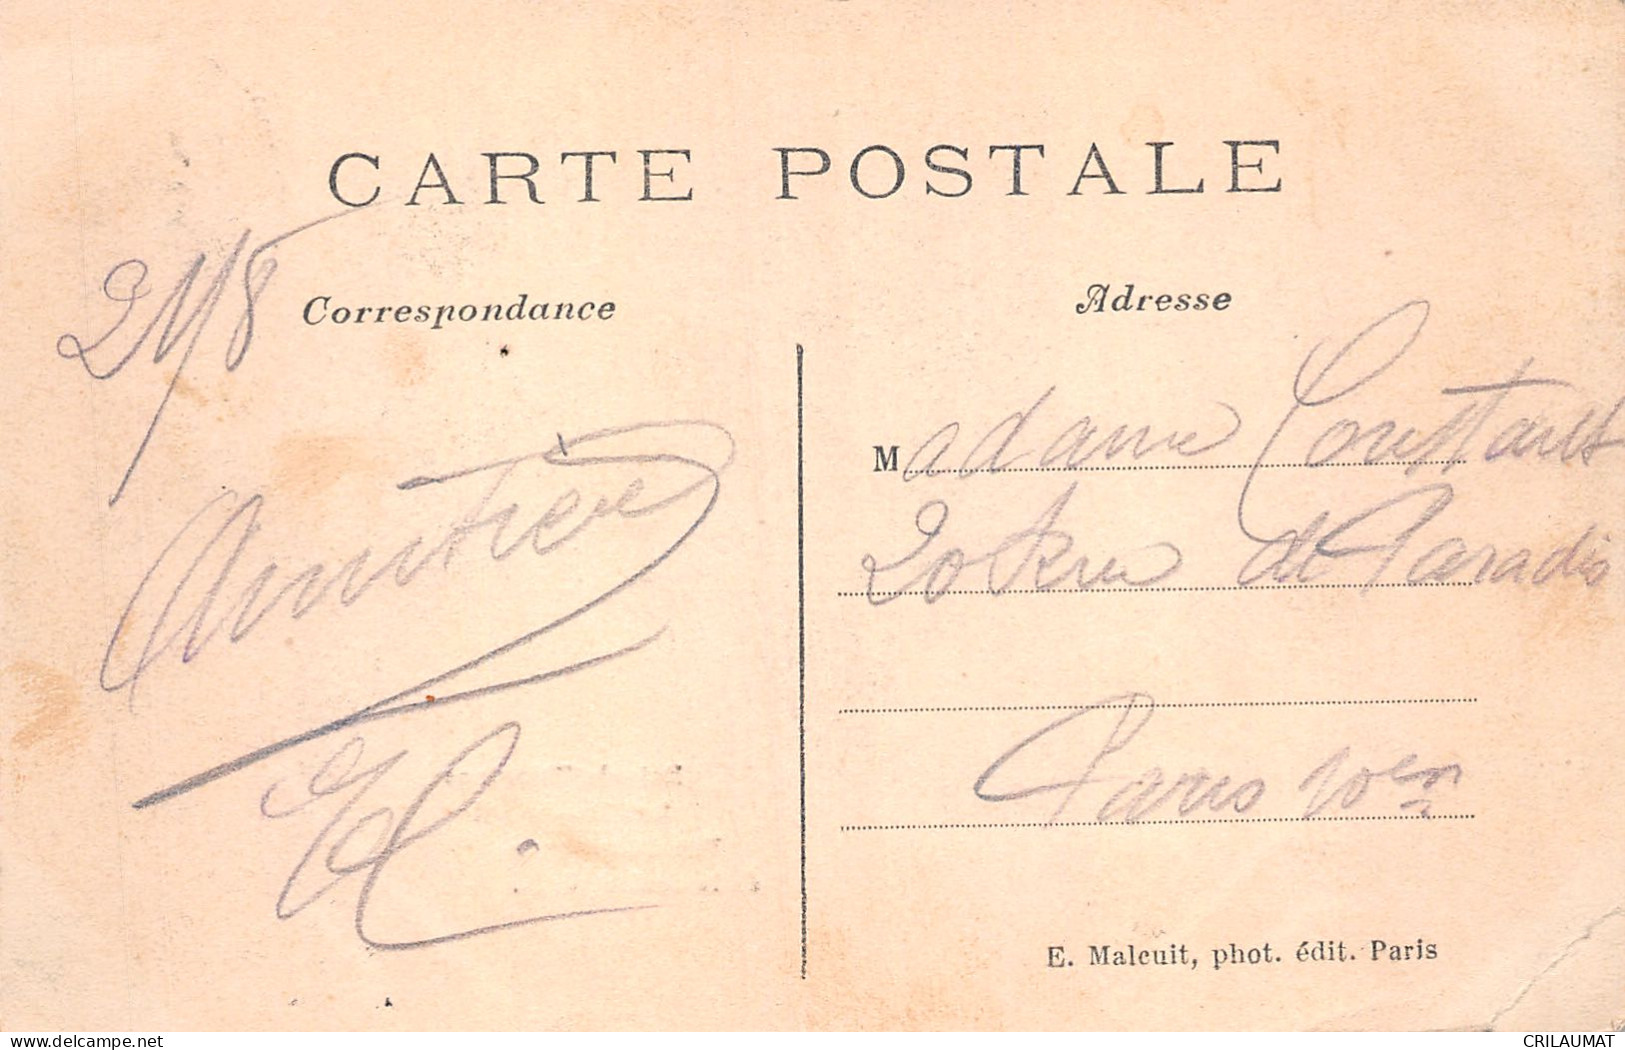 CARTE POSTALE
Correspondance
Adresse
Amitiés
Madame Constant
20 de Paradis
Paris 10em
E. Malcuit, phot. édit. Paris
delcampe.net
CRILAUMAT